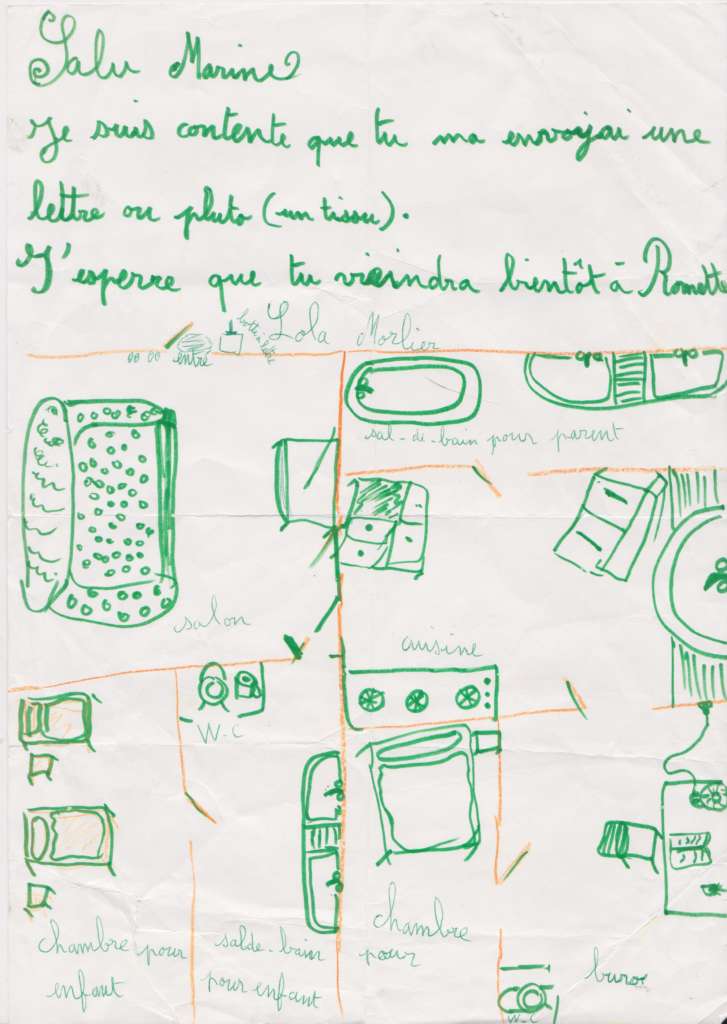 Salu Marine
Je suis contente que tu ma envoyai une
lettre ou pluto (un tissu).
J'esperre que tu vieindra bientôt à Romette
Lola Morlier
entre
boite à lettre
sal-de-bain pour parent
salon
cuisine
W.C
chambre pour
enfant
salde-bain
pour enfant
chambre
pour
buro
W.C